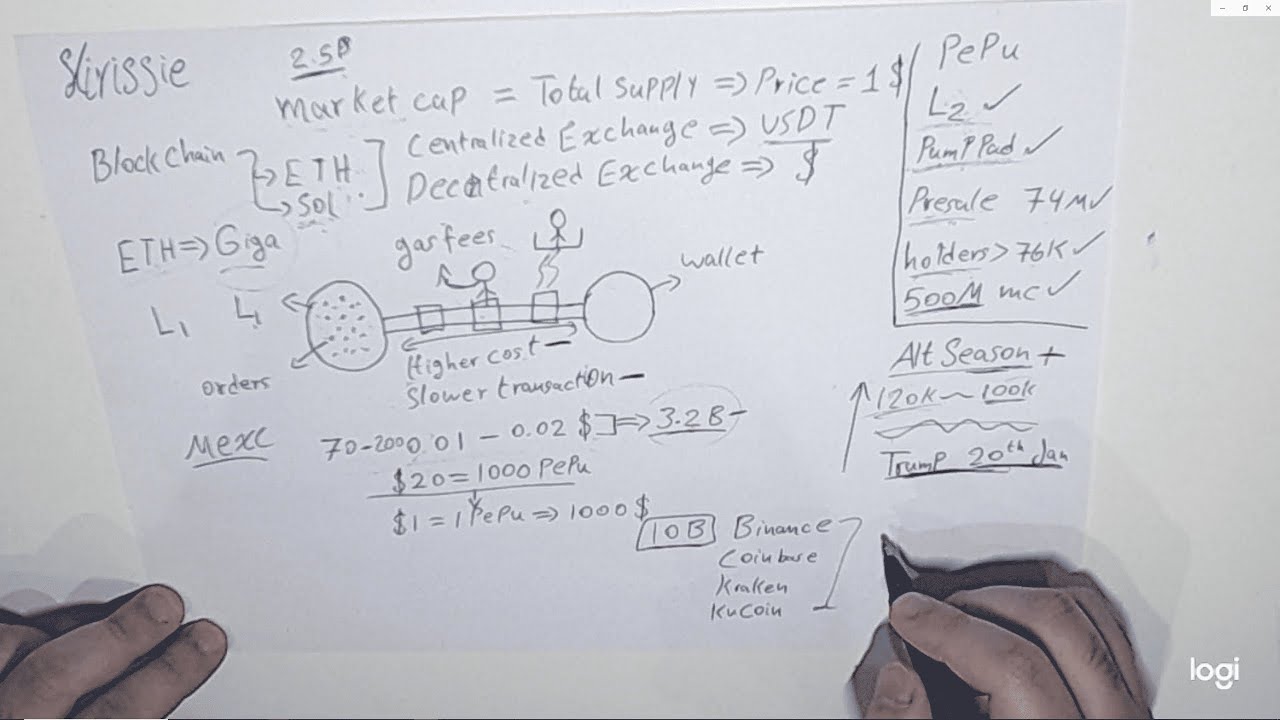 2.5B
market cap = Total supply => Price = 1$
BlockChain
ETH
SOL
Centralized Exchange => USDT
Decentralized Exchange => $
ETH => Giga
gas fees
wallet
L1 L1
orders
Higher cost -
Slower transaction -
Mexc
0.01 - 0.02 $ => 3.2B -
$20 = 1000 PePu
$1 = 1 PePu => 1000$
10B Binance
Coinbase
Kraken
KuCoin
PePu
L2 ✓
PumpPad ✓
Presale 74M ✓
holders > 76K ✓
500M mc ✓
Alt Season +
120K ~ 100K
Trump 20th Jan
logi